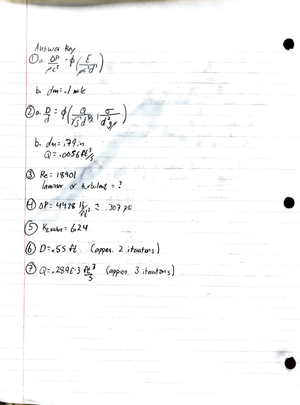 Answer Key
① a. ΔP/ρc² = ϕ(E/ρc²d³)
b. dm = .1 mile
② a. D/d = ϕ(Q/√g d^5/2, σ/d²gρ)
b. dm = .79 in
Q = .0056 ft³/s
③ Re = 18901
laminar or turbulent = ?
④ ΔP = 44.28 lb/ft² = .307 psi
⑤ KL valve = 6.24
⑥ D = .55 ft (appox. 2 iterations)
⑦ Q = .289E-3 ft³/s (appox. 3 iterations)